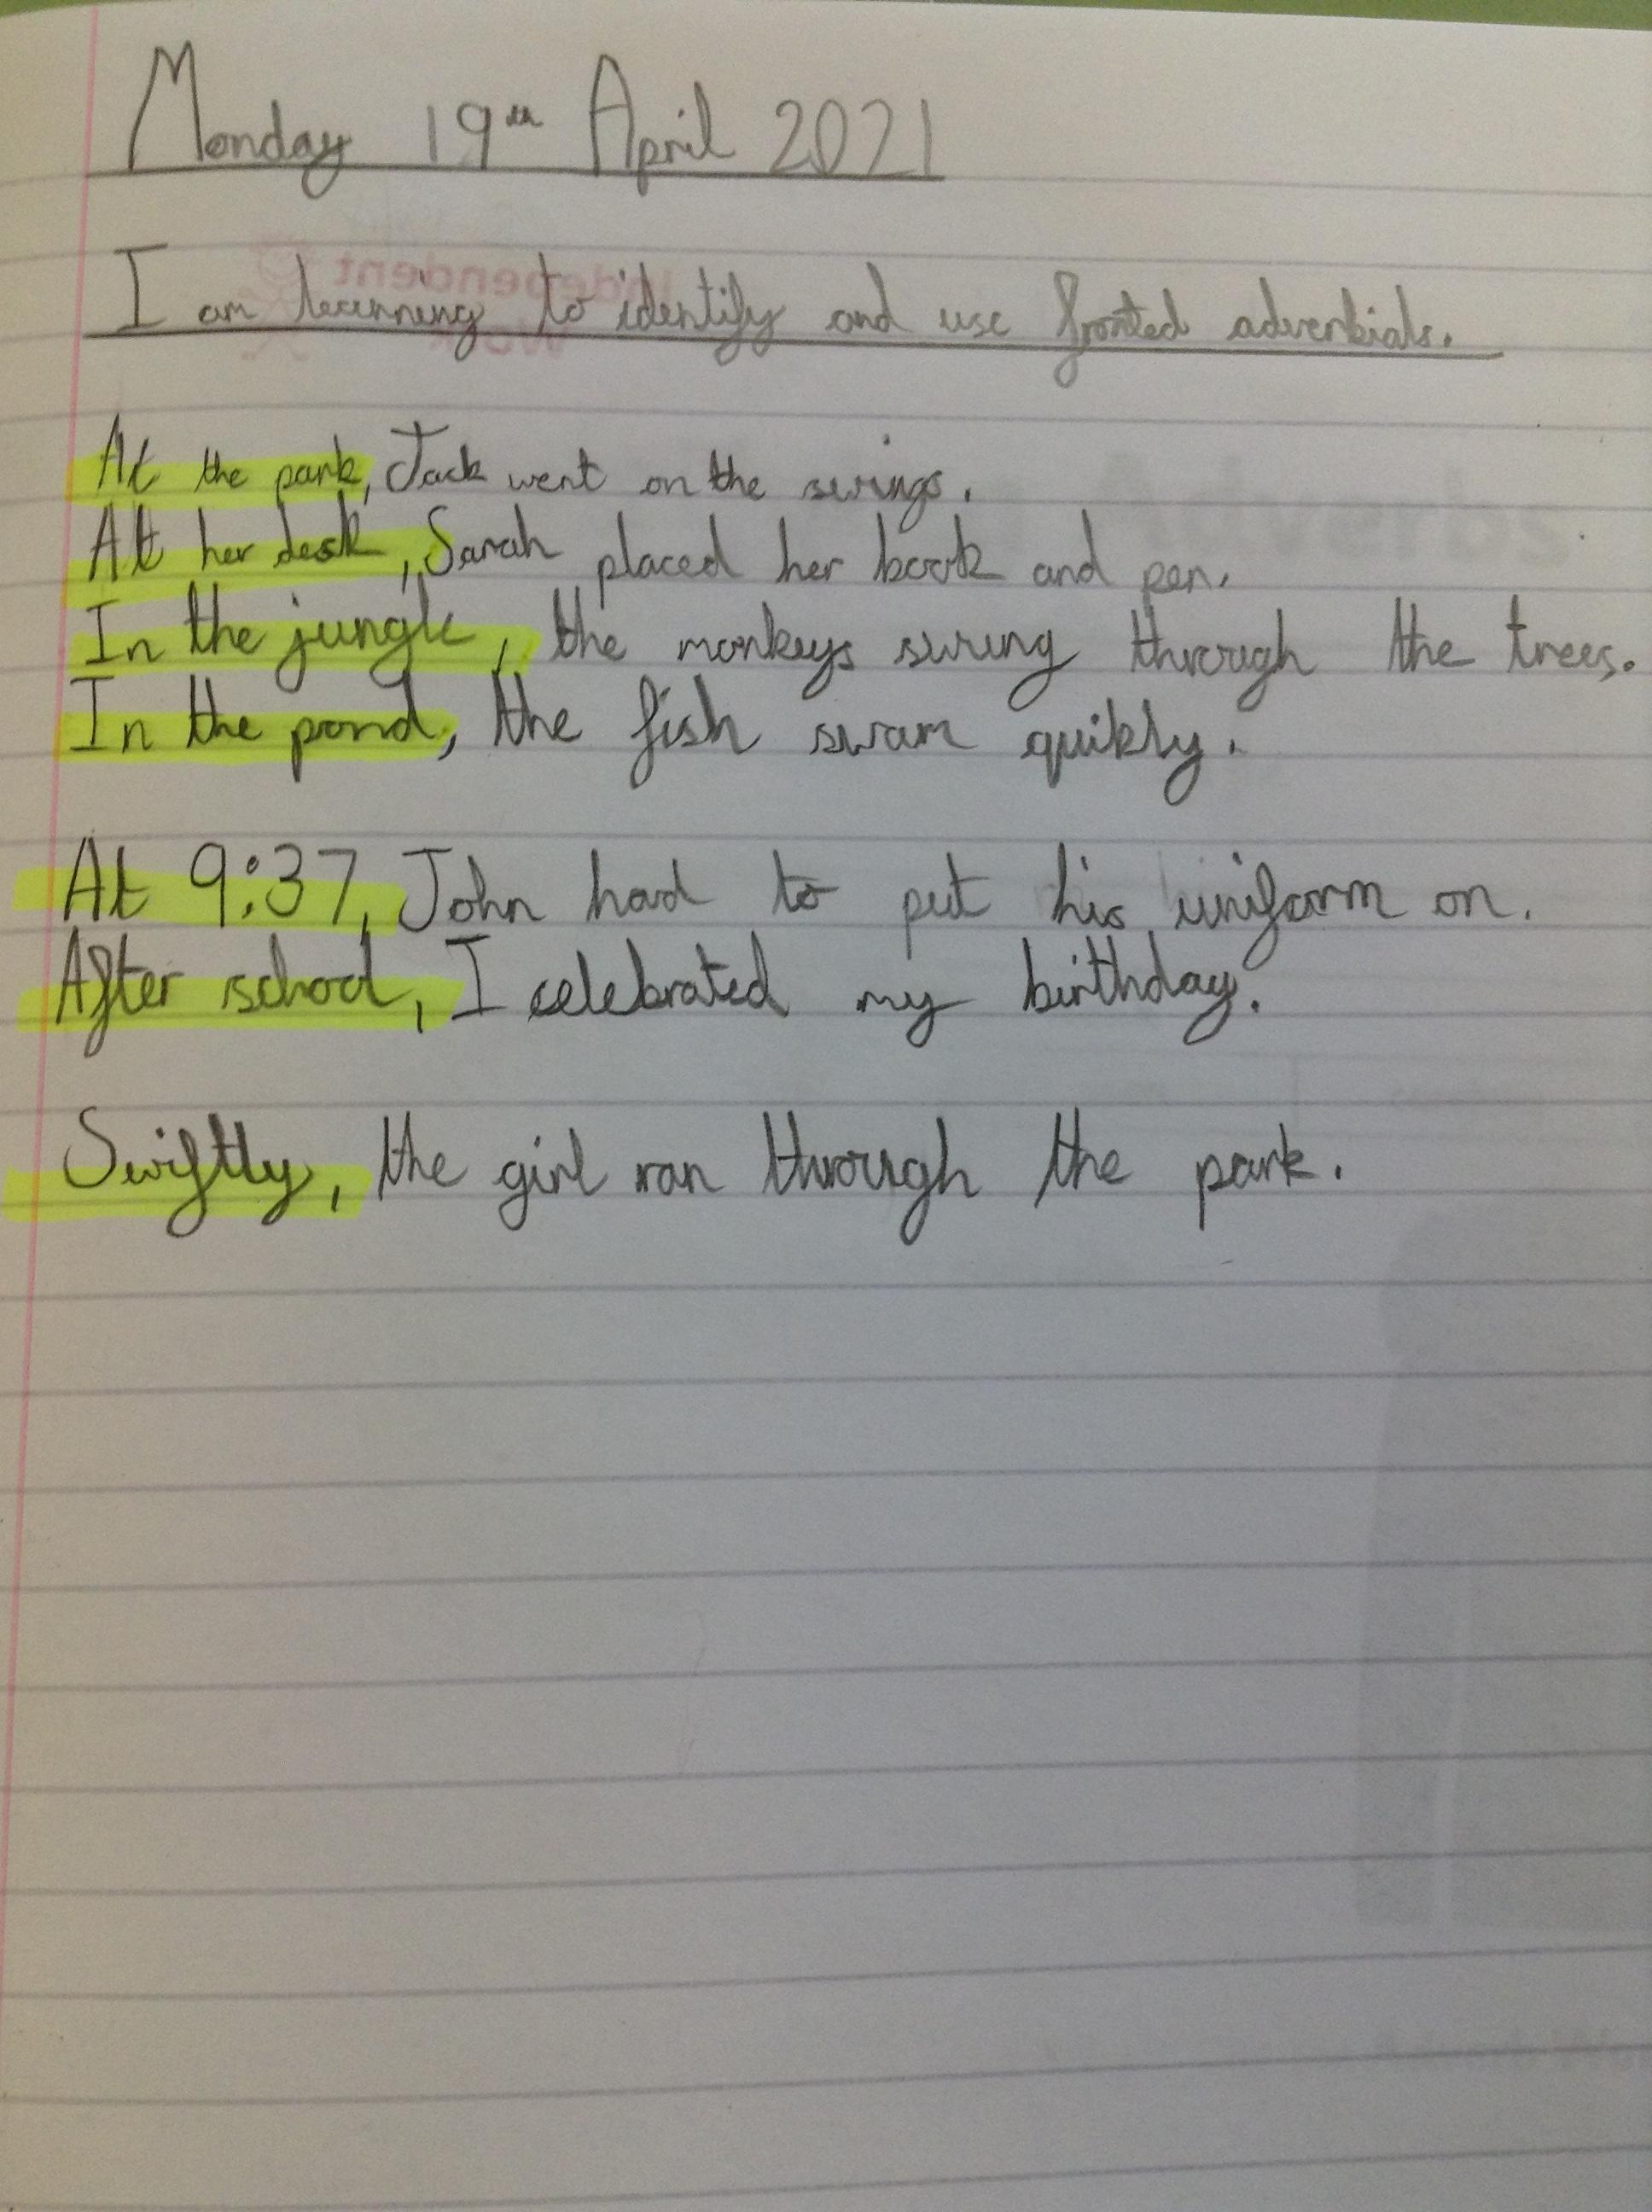 Monday 19th April 2021
I am learning to identify and use fronted adverbials.
At the park, Jack went on the swings.
At her desk, Sarah placed her book and pen.
In the jungle, the monkeys swung through the trees.
In the pond, the fish swam quikly.
At 9:37, John had to put his uniform on.
After school, I celebrated my birthday.
Swiftly, the girl ran through the park.